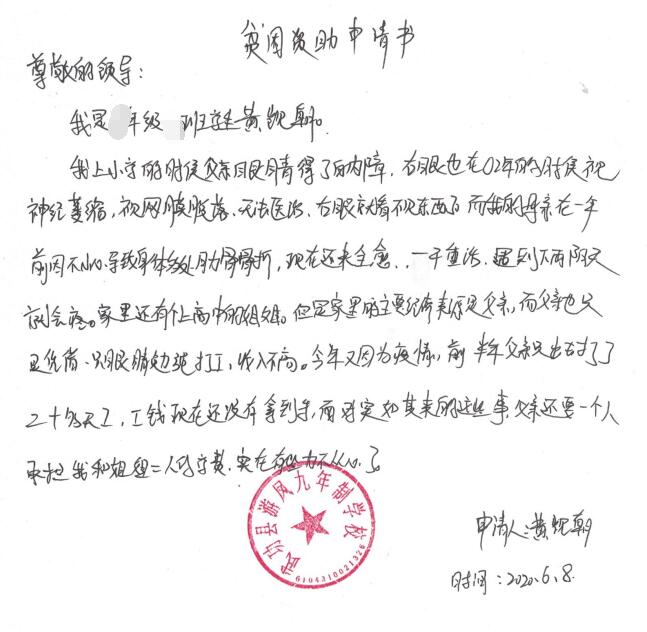 贫困资助申请书
尊敬的领导：
我是 年级 班学生黄煜朝。
我上小学的时候父亲眼睛得了白内障，右眼也在02年的时候视
神经萎缩，视网膜脱落，无法医治，右眼就看不见东西了 而我的母亲在一年
前因不小心导致身体多处肋骨骨折，现在还未全愈，一干重活，遇到下雨阴天
就会疼。家里还有个上高中的姐姐。但是家里的主要经济来源是父亲，而父亲也只
且凭借一只眼睛勉强打工，收入不高。今年又因为疫情，前半年父亲只出去打了
二十多天工，工钱现在还没有拿到手，而对突如其来的这些事，父亲还要一个人
承担我和姐姐二人的学费，实在有些力不从心了。
武功县游凤九年制学校
6104310021326
申请人：黄煜朝
时间：2020.6.8.